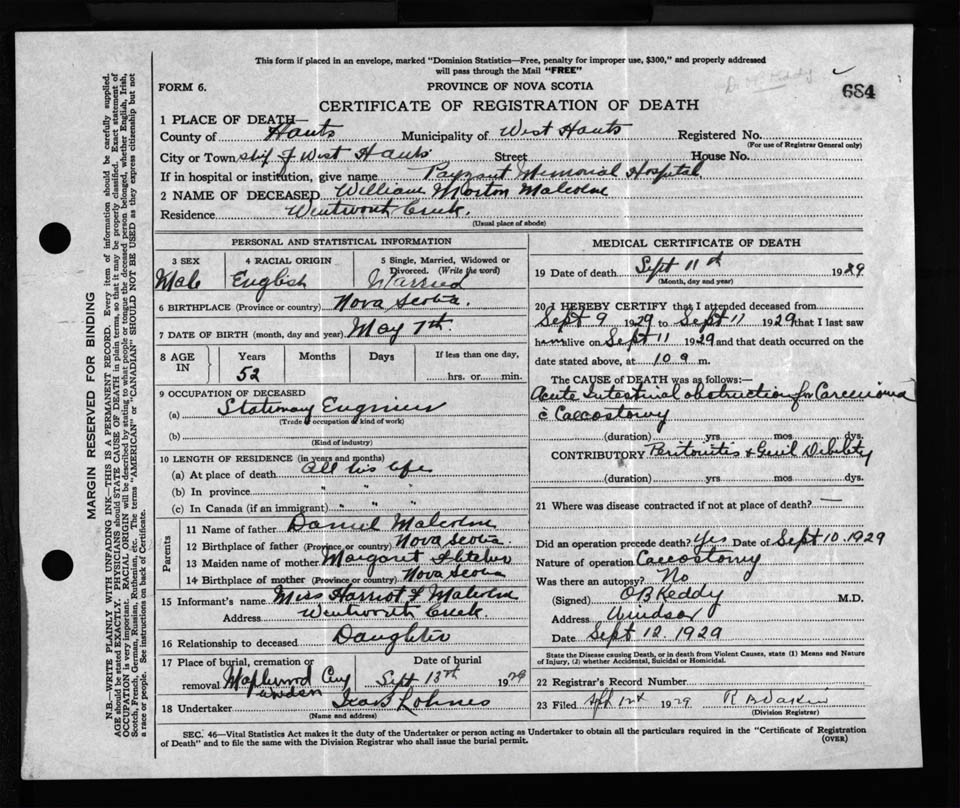 This form if placed in an envelope, marked "Dominion Statistics—Free, penalty for improper use, $300," and properly addressed
will pass through the Mail "FREE"
684
FORM 6.
PROVINCE OF NOVA SCOTIA
CERTIFICATE OF REGISTRATION OF DEATH
1 PLACE OF DEATH—
County of Hants Municipality of West Hants Registered No.
(For use of Registrar General only)
City or Town of West Hants Street House No.
If in hospital or institution, give name Payzant Memorial Hospital
2 NAME OF DECEASED William Morton Malcolm
Residence Wentworth Creek.
(Usual place of abode)
PERSONAL AND STATISTICAL INFORMATION
3 SEX
Male
4 RACIAL ORIGIN
English
5 Single, Married, Widowed or
Divorced. (Write the word)
Married
6 BIRTHPLACE (Province or country) Nova Scotia.
7 DATE OF BIRTH (month, day and year) May 7th.
8 AGE
IN
Years
52
Months
Days
If less than one day,
hrs. or min.
9 OCCUPATION OF DECEASED
(a) Stationary Engineer
(Trade, occupation or kind of work)
(b)
(Kind of industry)
10 LENGTH OF RESIDENCE (in years and months)
(a) At place of death All his life
(b) In province " "
(c) In Canada (if an immigrant) " "
Parents
11 Name of father Daniel Malcolm
12 Birthplace of father (Province or country) Nova Scotia.
13 Maiden name of mother Margaret
14 Birthplace of mother (Province or country) Nova Scotia
15 Informant's name Miss Harriet F. Malcolm
Address Wentworth Creek.
16 Relationship to deceased Daughter
17 Place of burial, cremation or
removal Maplewood Cmy
Date of burial
Sept 13th 1929
18 Undertaker Lohnes
(Name and address)
MEDICAL CERTIFICATE OF DEATH
19 Date of death Sept 11th 1929
(Month, day and year)
20 I HEREBY CERTIFY that I attended deceased from
Sept 9 1929 to Sept 11 1929 that I last saw
him alive on Sept 11 1929 and that death occurred on the
date stated above, at 10 a m.
The CAUSE OF DEATH was as follows:—
Acute Intestinal obstruction for Carcinoma
c Caecostomy
(duration) yrs mos dys.
CONTRIBUTORY Peritonitis & Genl Debility
(duration) yrs mos dys.
21 Where was disease contracted if not at place of death? —
Did an operation precede death? yes Date of Sept 10. 1929
Nature of operation Caecostomy
Was there an autopsy? No
(Signed) O B Keddy M.D.
Address Windsor
Date Sept 12. 1929
State the Disease causing Death, or in death from Violent Causes, state (1) Means and Nature
of Injury, (2) whether Accidental, Suicidal or Homicidal.
22 Registrar's Record Number
23 Filed Sept 12t 1929
(Division Registrar)
SEC. 46—Vital Statistics Act makes it the duty of the Undertaker or person acting as Undertaker to obtain all the particulars required in the "Certificate of Registration
of Death" and to file the same with the Division Registrar who shall issue the burial permit.
(OVER)
MARGIN RESERVED FOR BINDING
N.B.—WRITE PLAINLY WITH UNFADING INK—THIS IS A PERMANENT RECORD. Every item of information should be carefully supplied.
AGE should be stated EXACTLY. PHYSICIANS should STATE CAUSE OF DEATH in plain terms, so that it may be properly classified. Exact statement of
OCCUPATION is very important. RACIAL ORIGIN will be described by stating to what people or tongue the deceased person belonged, whether English, Irish,
Scotch, French, German, Russian, Ruthenian, etc. The terms "AMERICAN" or "CANADIAN" SHOULD NOT BE USED as they express citizenship but not
a race or people. See instructions on back of Certificate.